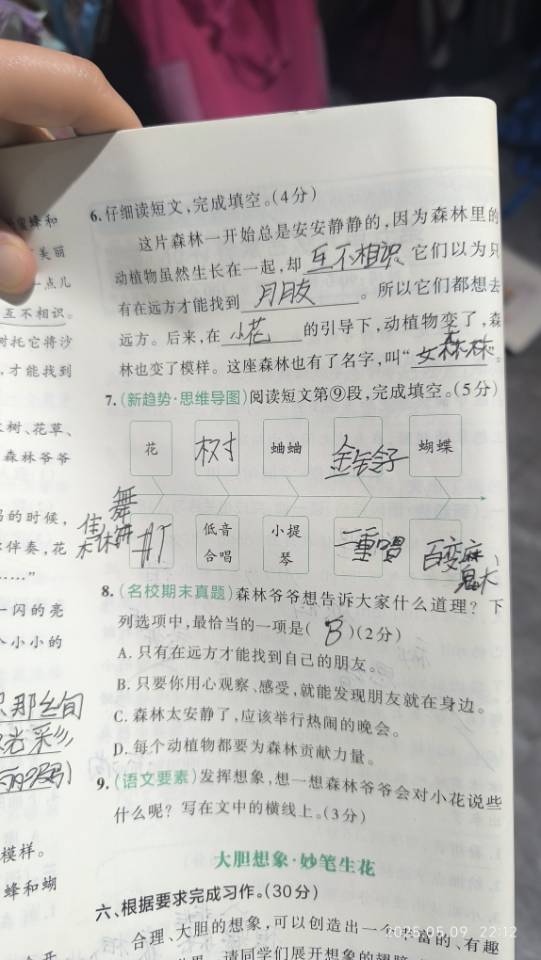 蜜蜂和
美丽
一点儿
互不相识。
树托它将沙
,才能找到
树、花草、
森林爷爷
的时候,
伴奏,花
……”
一闪的亮
个小小的
模样。
蜂和蝴
6.仔细读短文,完成填空。(4分)
这片森林一开始总是安安静静的,因为森林里的
动植物虽然生长在一起,却互不相识。它们以为只
有在远方才能找到朋友。所以它们都想去
远方。后来,在小花的引导下,动植物变了,森
林也变了模样。这座森林也有了名字,叫“
7.(新趋势·思维导图)阅读短文第⑨段,完成填空。(5分)
花 树 蛐蛐 金铃子 蝴蝶
舞
低音合唱 小提琴 二重唱
8.(名校期末真题)森林爷爷想告诉大家什么道理?下
列选项中,最恰当的一项是( B )(2分)
A.只有在远方才能找到自己的朋友。
B.只要你用心观察、感受,就能发现朋友就在身边。
C.森林太安静了,应该举行热闹的晚会。
D.每个动植物都要为森林贡献力量。
9.(语文要素)发挥想象,想一想森林爷爷会对小花说些
什么呢?写在文中的横线上。(3分)
大胆想象·妙笔生花
六、根据要求完成习作。(30分)
合理、大胆的想象,可以创造出一个丰富的、有趣
请同学们展开想象的翅膀
2025.05.09 22:12